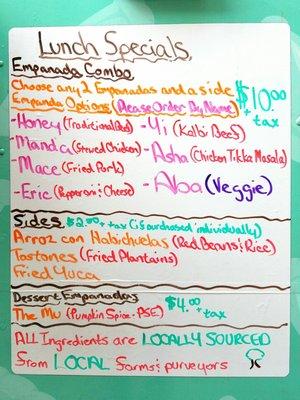 Lunch Specials
Empanada Combo
Choose any 2 Empanadas and a side $10.00
Empanda Options (Please Order By Name) + tax
-Honey (Traditional Beef) -Yi (Kalbi Beef)
-Manda (Stewed Chicken) -Asha (Chicken Tikka Masala)
-Mace (Fried Pork) -Aba (Veggie)
-Eric (Pepperoni & Cheese)
Sides $2.00 + tax (is purchased individually)
Arroz con Habichuelas (Red Beans & Rice)
Tostones (Fried Plantains)
Fried Yucca
Dessert Empanadas $4.00
The Mu (Pumpkin Spice-PSE) + tax
All Ingredients are LOCALLY SOURCED
from LOCAL farms & purveyors